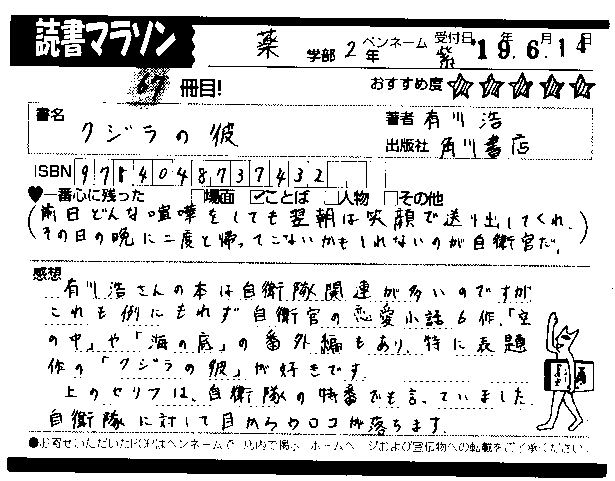 読書マラソン
薬 学部 2年 ペンネーム 紫 受付日 '19年 6月 14日
67 冊目!
おすすめ度 ☆☆☆☆☆
書名 クジラの彼
著者 有川 浩
出版社 角川書店
ISBN 9784048737432
♥一番心に残った □場面 ☑ことば □人物 □その他
(前日どんな喧嘩をしても翌朝は笑顔で送り出してくれ。
その日の晩に二度と帰ってこないかもしれないのが自衛官だ。)
感想
有川浩さんの本は自衛隊関連が多いのですが
これも例にもれず自衛官の恋愛小話6作。「空
の中」や「海の底」の番外編もあり、特に表題
作の「クジラの彼」が好きです。
上のセリフは、自衛隊の特番でも言っていました。
自衛隊に対して目からウロコが落ちます。
●お寄せいただいたPOPはペンネームで、店内で掲示、ホームページおよび宣伝物への転載をご了承ください。